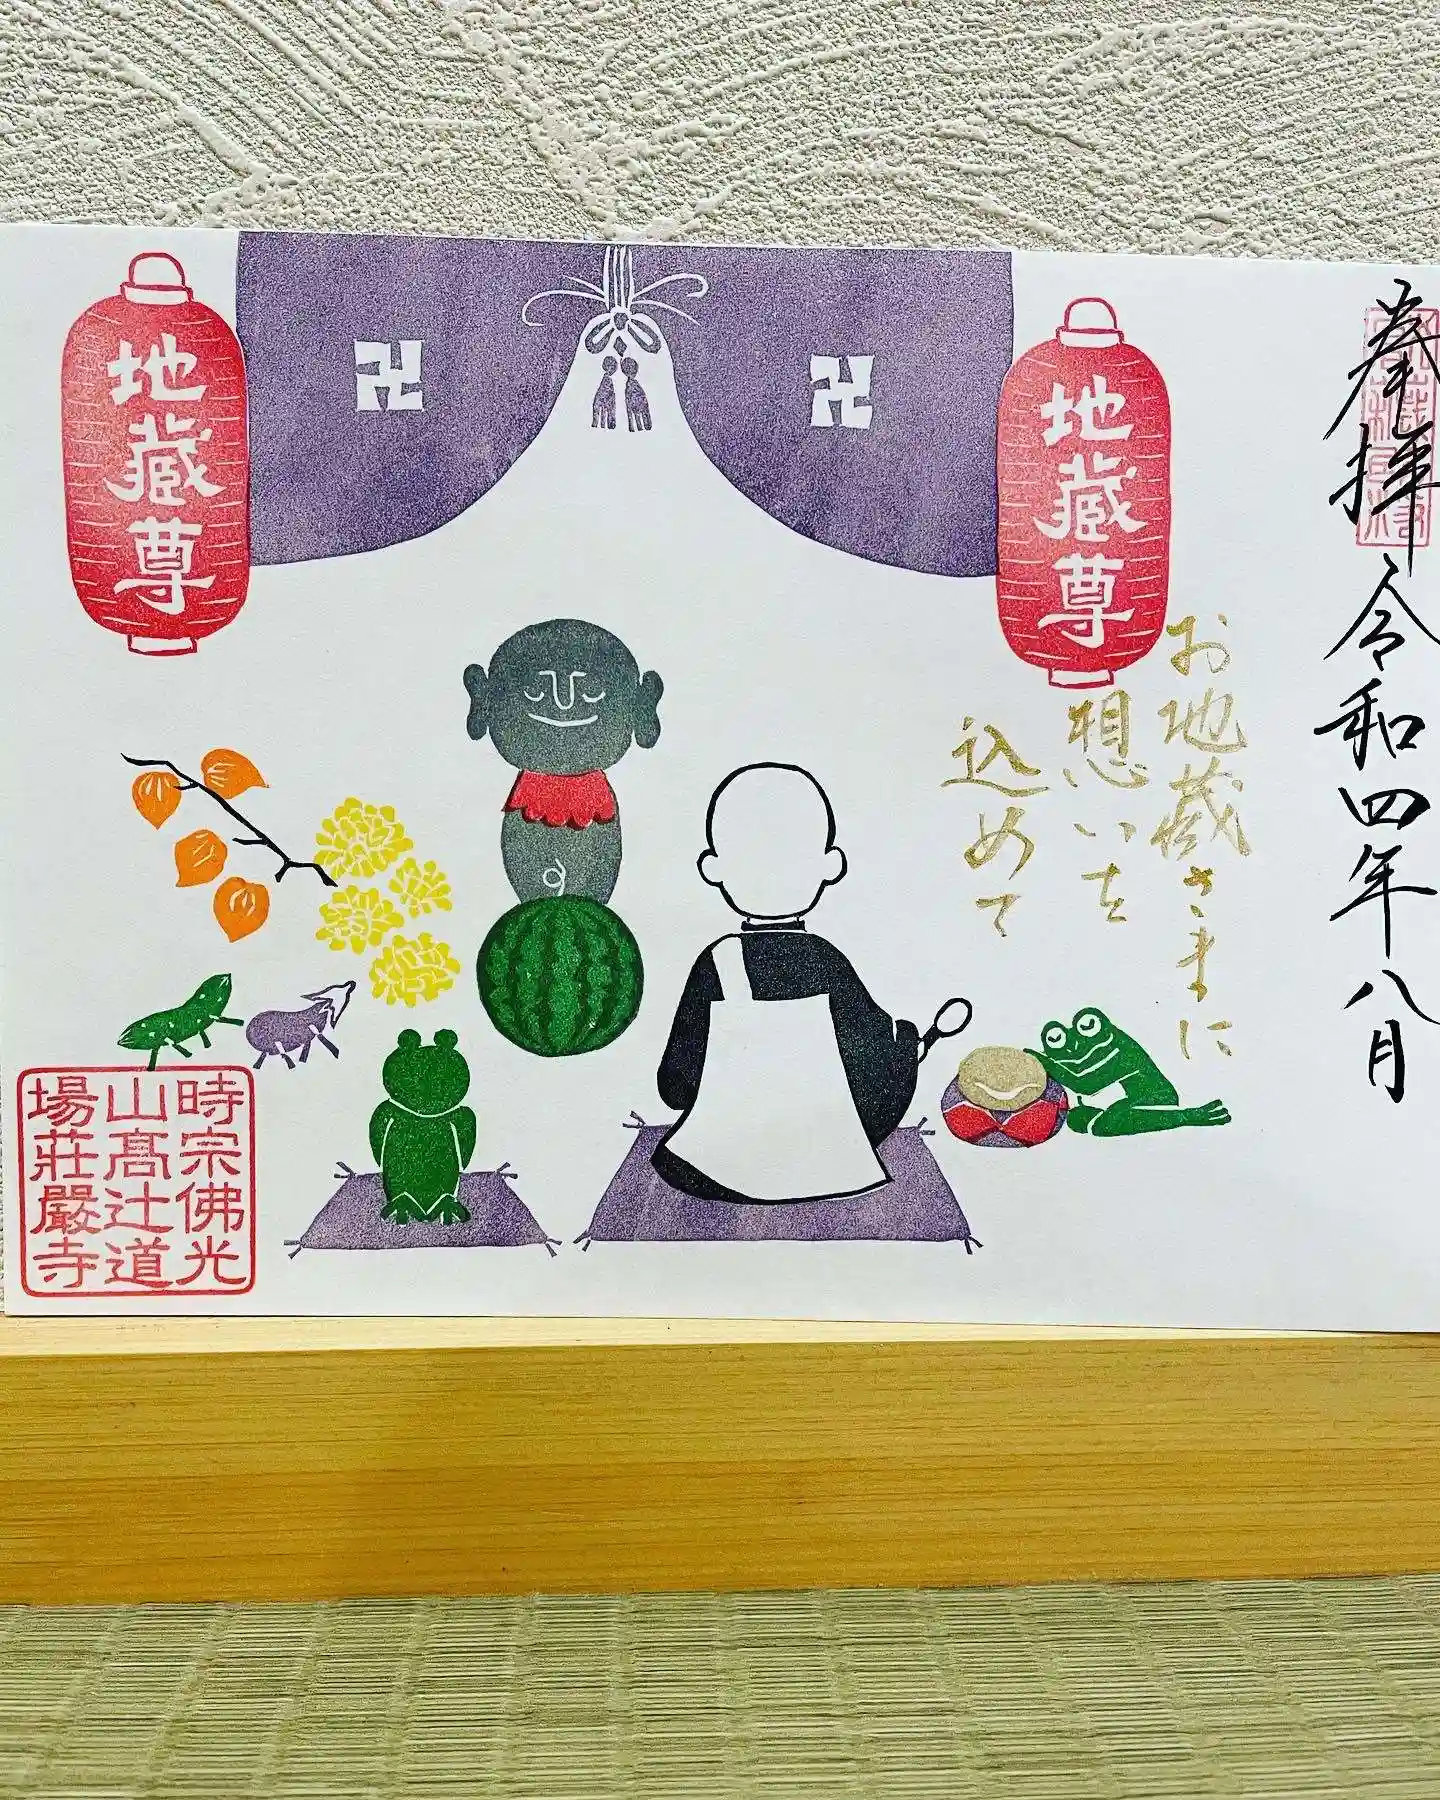 奉拝 令和四年八月
お地蔵さまに
想いを
込めて
地蔵尊
地蔵尊
時宗佛光
山髙辻道
場莊嚴寺